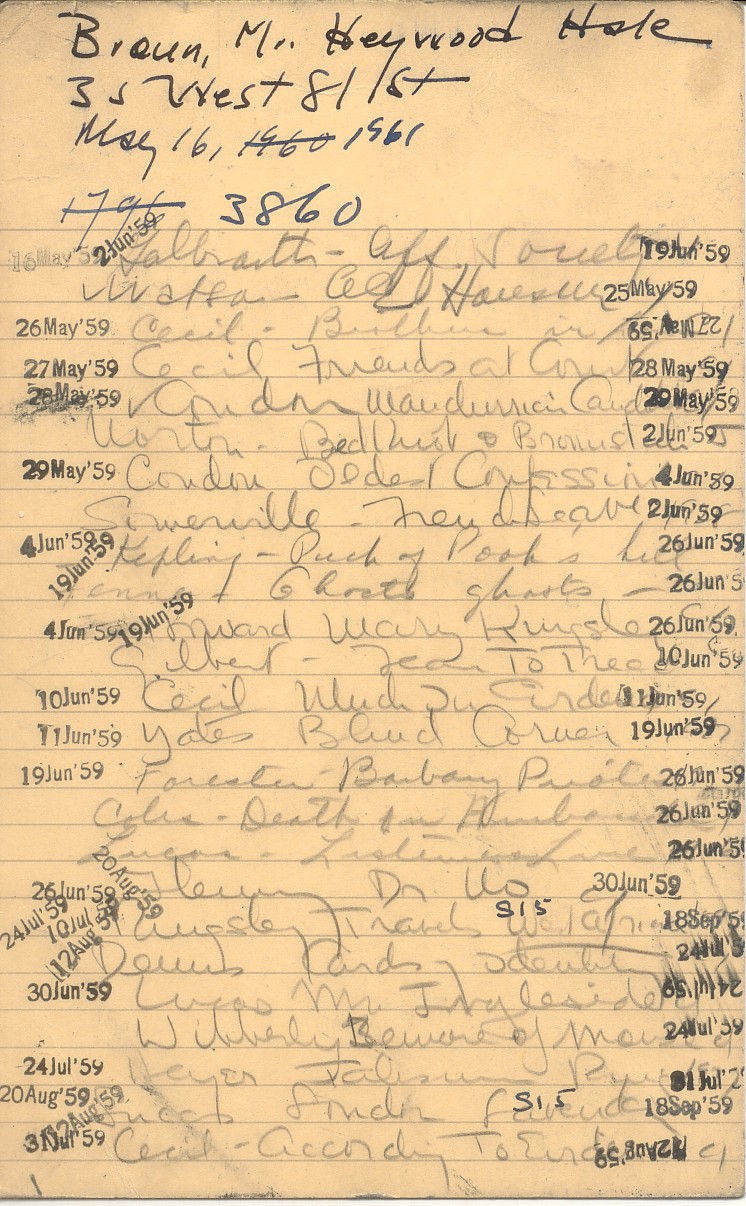 Broun, Mr. Heywood Hale
35 West 81 St
May 16, 1960 1961
1796 3860
16May'59 2Jun'59 Galbraith - Aff Society 19Jun'59
Watson 25May'59
26May'59 Cecil - Brothers in 27May'59
27May'59 Cecil Friends at Court 28May'59
28May'59 Condon Manchurian Cand 29May'59
Norton - Bedknob & Broomstick 2Jun'59
29May'59 Condon Oldest Confession 4Jun'59
Somerville - 2Jun'59
4Jun'59 Kipling - Puck of Pook's hill 26Jun'59
19Jun'59 Ghosts ghosts - 26Jun'5
4Jun'59 19Jun'59 Howard Mary Kingsley 26Jun'59
Gilbert - Fear To Tread 10Jun'59
10Jun'59 Cecil Much In Evidence 11Jun'59
11Jun'59 Yates Blind Corner 19Jun'59
19Jun'59 Forester - Barbary Pirates 26Jun'59
Coles - Death of an Ambassador 26Jun'59
Lucas - Listener's Lure 26Jun'59
26Jun'59 20Aug'59 Fleming Dr. No 30Jun'59
24Jul'59 10Jul'59 12Aug'59 Kingsley Travels W. Africa S15 18Sep'59
Dennis Pards identity 24Jul'5
30Jun'59 Lucas Mr. Ingleside 24Jul'59
Wibberly Beware of Mouse 24Jul'59
24Jul'59 Heyer 31Jul'
20Aug'59 12Aug'59 Lucas London Lavender S15 18Sep'59
31Jul'59 Cecil - According To Evidence 12Aug'59